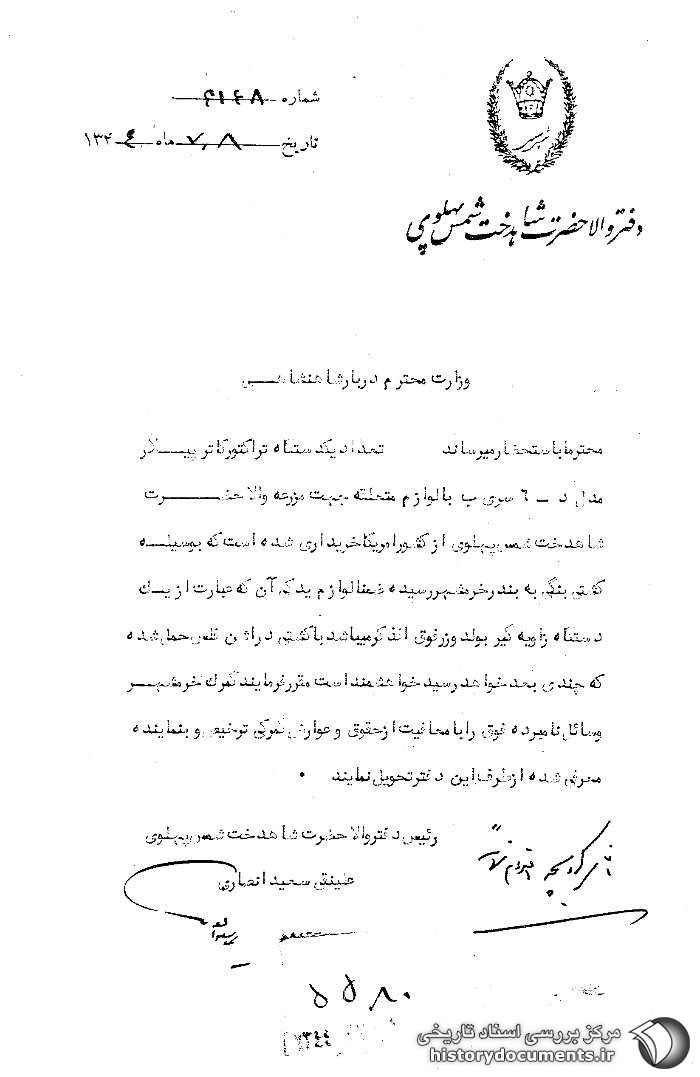 شماره ۴۱۶۸
تاریخ ۷٫۸ ماه ۱۳۴۴
دفتر والاحضرت شاهدخت شمس پهلوی
وزارت محترم دربار شاهنشاهی
محترما باستحضار میرساند تعداد یکدستگاه تراکتور کاترپیلار
مدل د - ٦ سری ب با لوازم متعلقه جهت مزرعه والاحضرت
شاهدخت شمس پهلوی از کشور امریکا خریداری شده است که بوسیله
کشتی به بندر خرمشهر رسیده ضمنا لوازم یدکی آن که عبارت از یک
دستگاه زاویه گیر بولدوزر فوق الذکر میباشد با کشتی حمل شده
که چندی بعد خواهد رسید خواهشمند است مقرر فرمایند گمرک خرمشهر
وسائل نامبرده فوق را با معافیت از حقوق و عوارض گمرکی ترخیص و بنماینده
معرفی شده از طرف این دفتر تحویل نمایند ۰
رئیس دفتر والاحضرت شاهدخت شمس پهلوی
علینقی سعید انصاری
۵۵۸۰
۱۳۴۴
مرکز بررسی اسناد تاریخی
historydocuments.ir